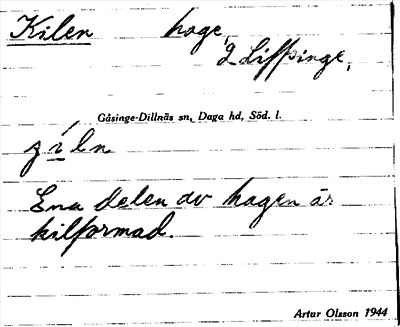 Kilen hage,
Liffsinge,
Gåsinge-Dillnäs sn, Daga hd, Söd. l.
Ena delen av hagen är
kilformad.
Artur Olsson 1944